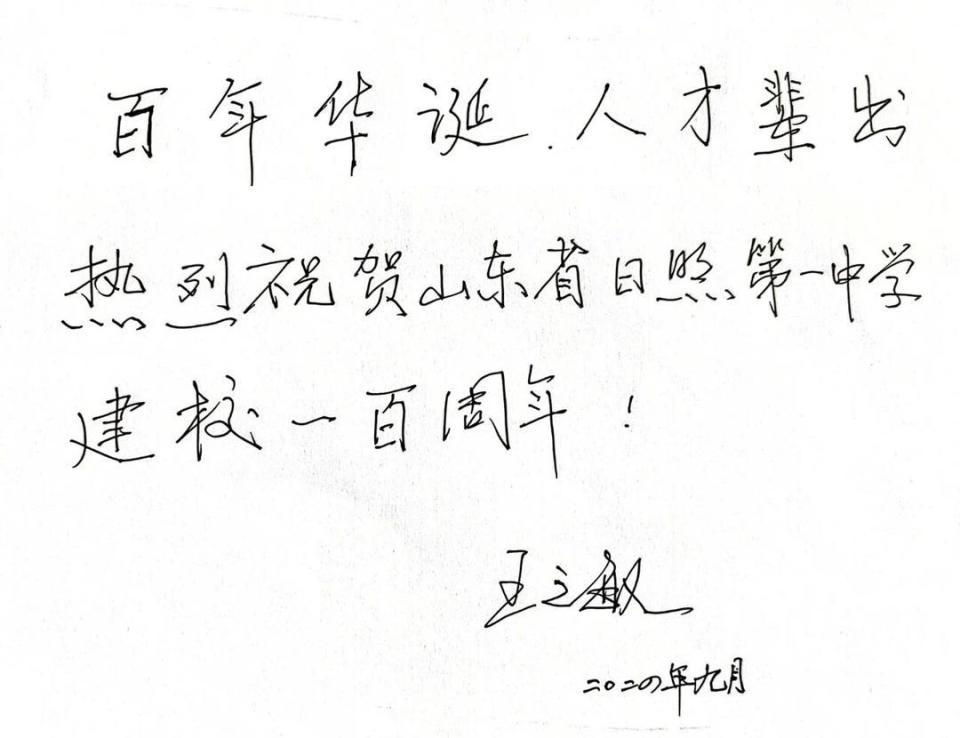 百年华诞.人才辈出
热烈祝贺山东省日照第一中学
建校一百周年!
王之敏
二〇二四年九月